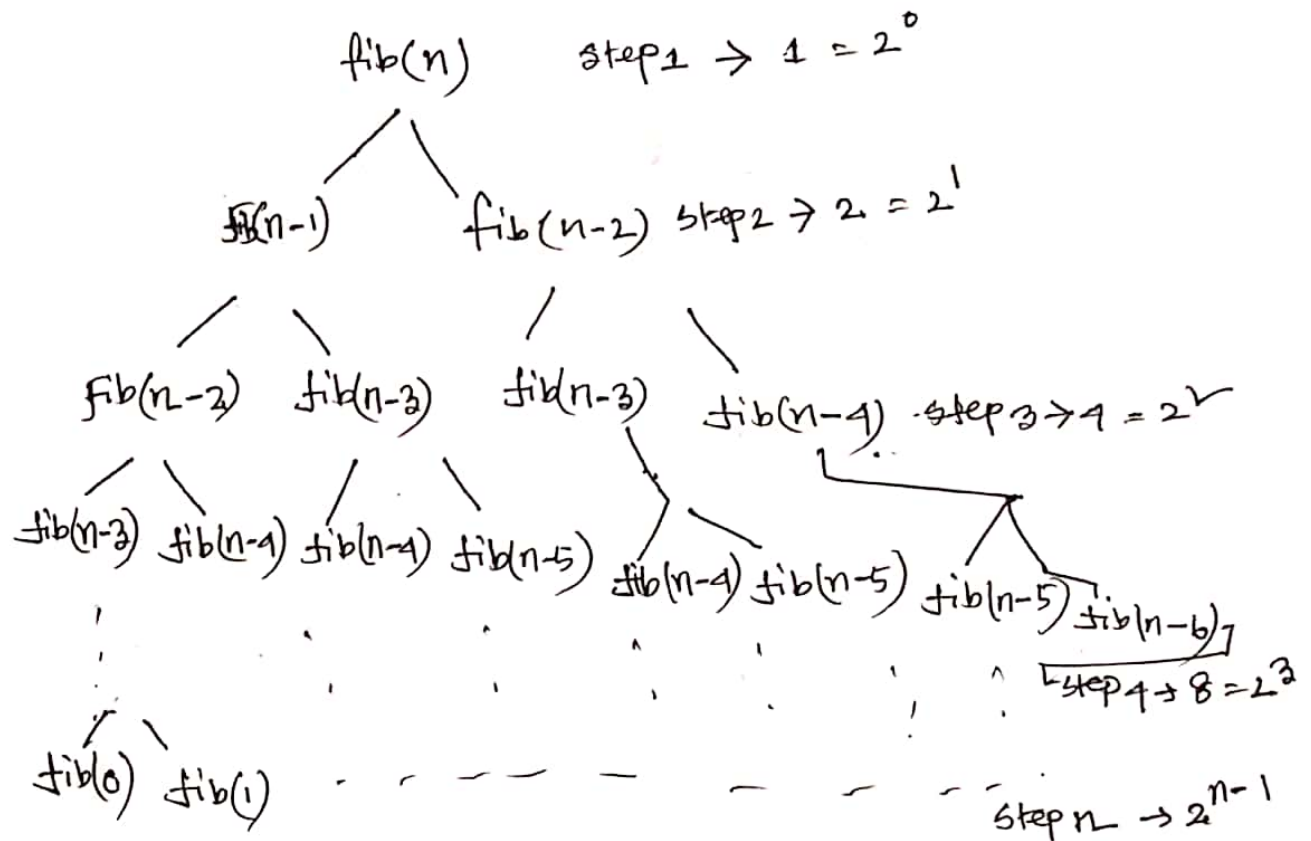 fib(n) step1 → 1 = 2⁰
fib(n-1) fib(n-2) step2 → 2 = 2¹
fib(n-2) fib(n-3) fib(n-3) fib(n-4) step 3 → 4 = 2²
fib(n-3) fib(n-4) fib(n-4) fib(n-5) fib(n-4) fib(n-5) fib(n-5) fib(n-6)
step 4 → 8 = 2³
fib(0) fib(1)
step n → 2ⁿ⁻¹